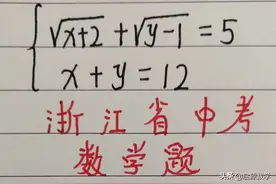 √x+2 + √y-1 = 5
x + y = 12
浙江省中考
数学题